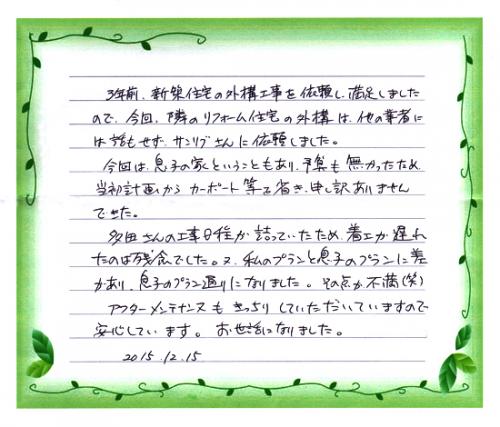 3年前、新築住宅の外構工事を依頼し、満足しました
ので、今回、隣のリフォーム住宅の外構は、他の業者に
は話もせず、サンリブさんに依頼しました。
今回は、息子の家ということもあり、予算も無かったため
当初計画からカーポート等を省き、申し訳ありません
でした。
多田さんの工事日程が詰っていたため、着工が遅れ
たのは残念でした。又、私のプランと息子のプランに差
があり、息子のプラン通りになりました。その点が不満(笑)
アフターメンテナンスもきっちりしていただいていますので
安心しています。お世話になりました。
2015.12.15